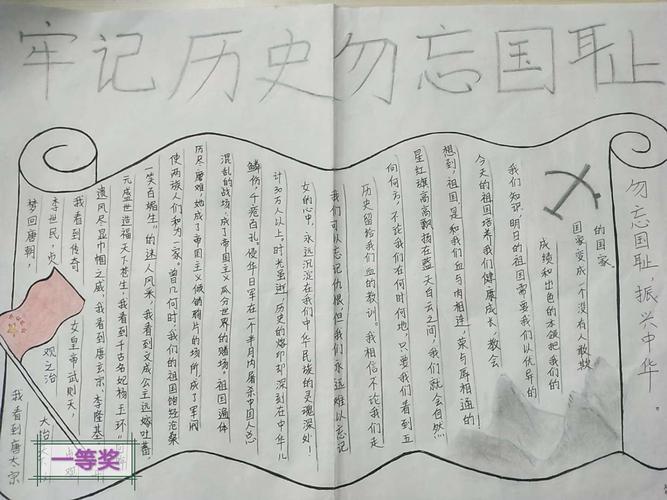 牢记历史勿忘国耻
梦回唐朝,我看到唐太宗
李世民,贞观之治
我看到传奇女皇帝武则天,
遗风尽显巾帼之威,我看到唐玄宗,李隆基
元盛世造福天下苍生,我看到千古名妃杨玉环"
一笑百媚生"的迷人风采,我看到文成公主远嫁吐蕃,
使两族人们和为一家。曾几何时,我们的祖国饱经沧桑
历尽磨难,她成了帝国主义倾销鸦片的场所,成了军阀
混乱的战场,成了帝国主义瓜分世界的赌场,祖国遍体
鳞伤,千疮百孔。侵华日军在一个半月内屠杀中国人总
计30万人以上。时光虽逝,历史的烙印却深刻在中华儿
女的心中,永远沉淀在我们中华民族的灵魂深处!
我们可以忘记仇恨,但我们永远难以忘记
历史留给我们血的教训。我相信不论我们走
向何方,不论我们在何时何地,只要我们看到五
星红旗高高飘扬在蓝天白云之间,我们就会自然
想到,祖国是和我们血与肉相连,荣与辱相通的!
今天的祖国培养我们健康成长,教会
我们知识,明日的祖国需要我们以优异的
成绩和出色的本领把我们的
国家变成一个没有人敢欺
的国家.
勿忘国耻,振兴中华.
一等奖